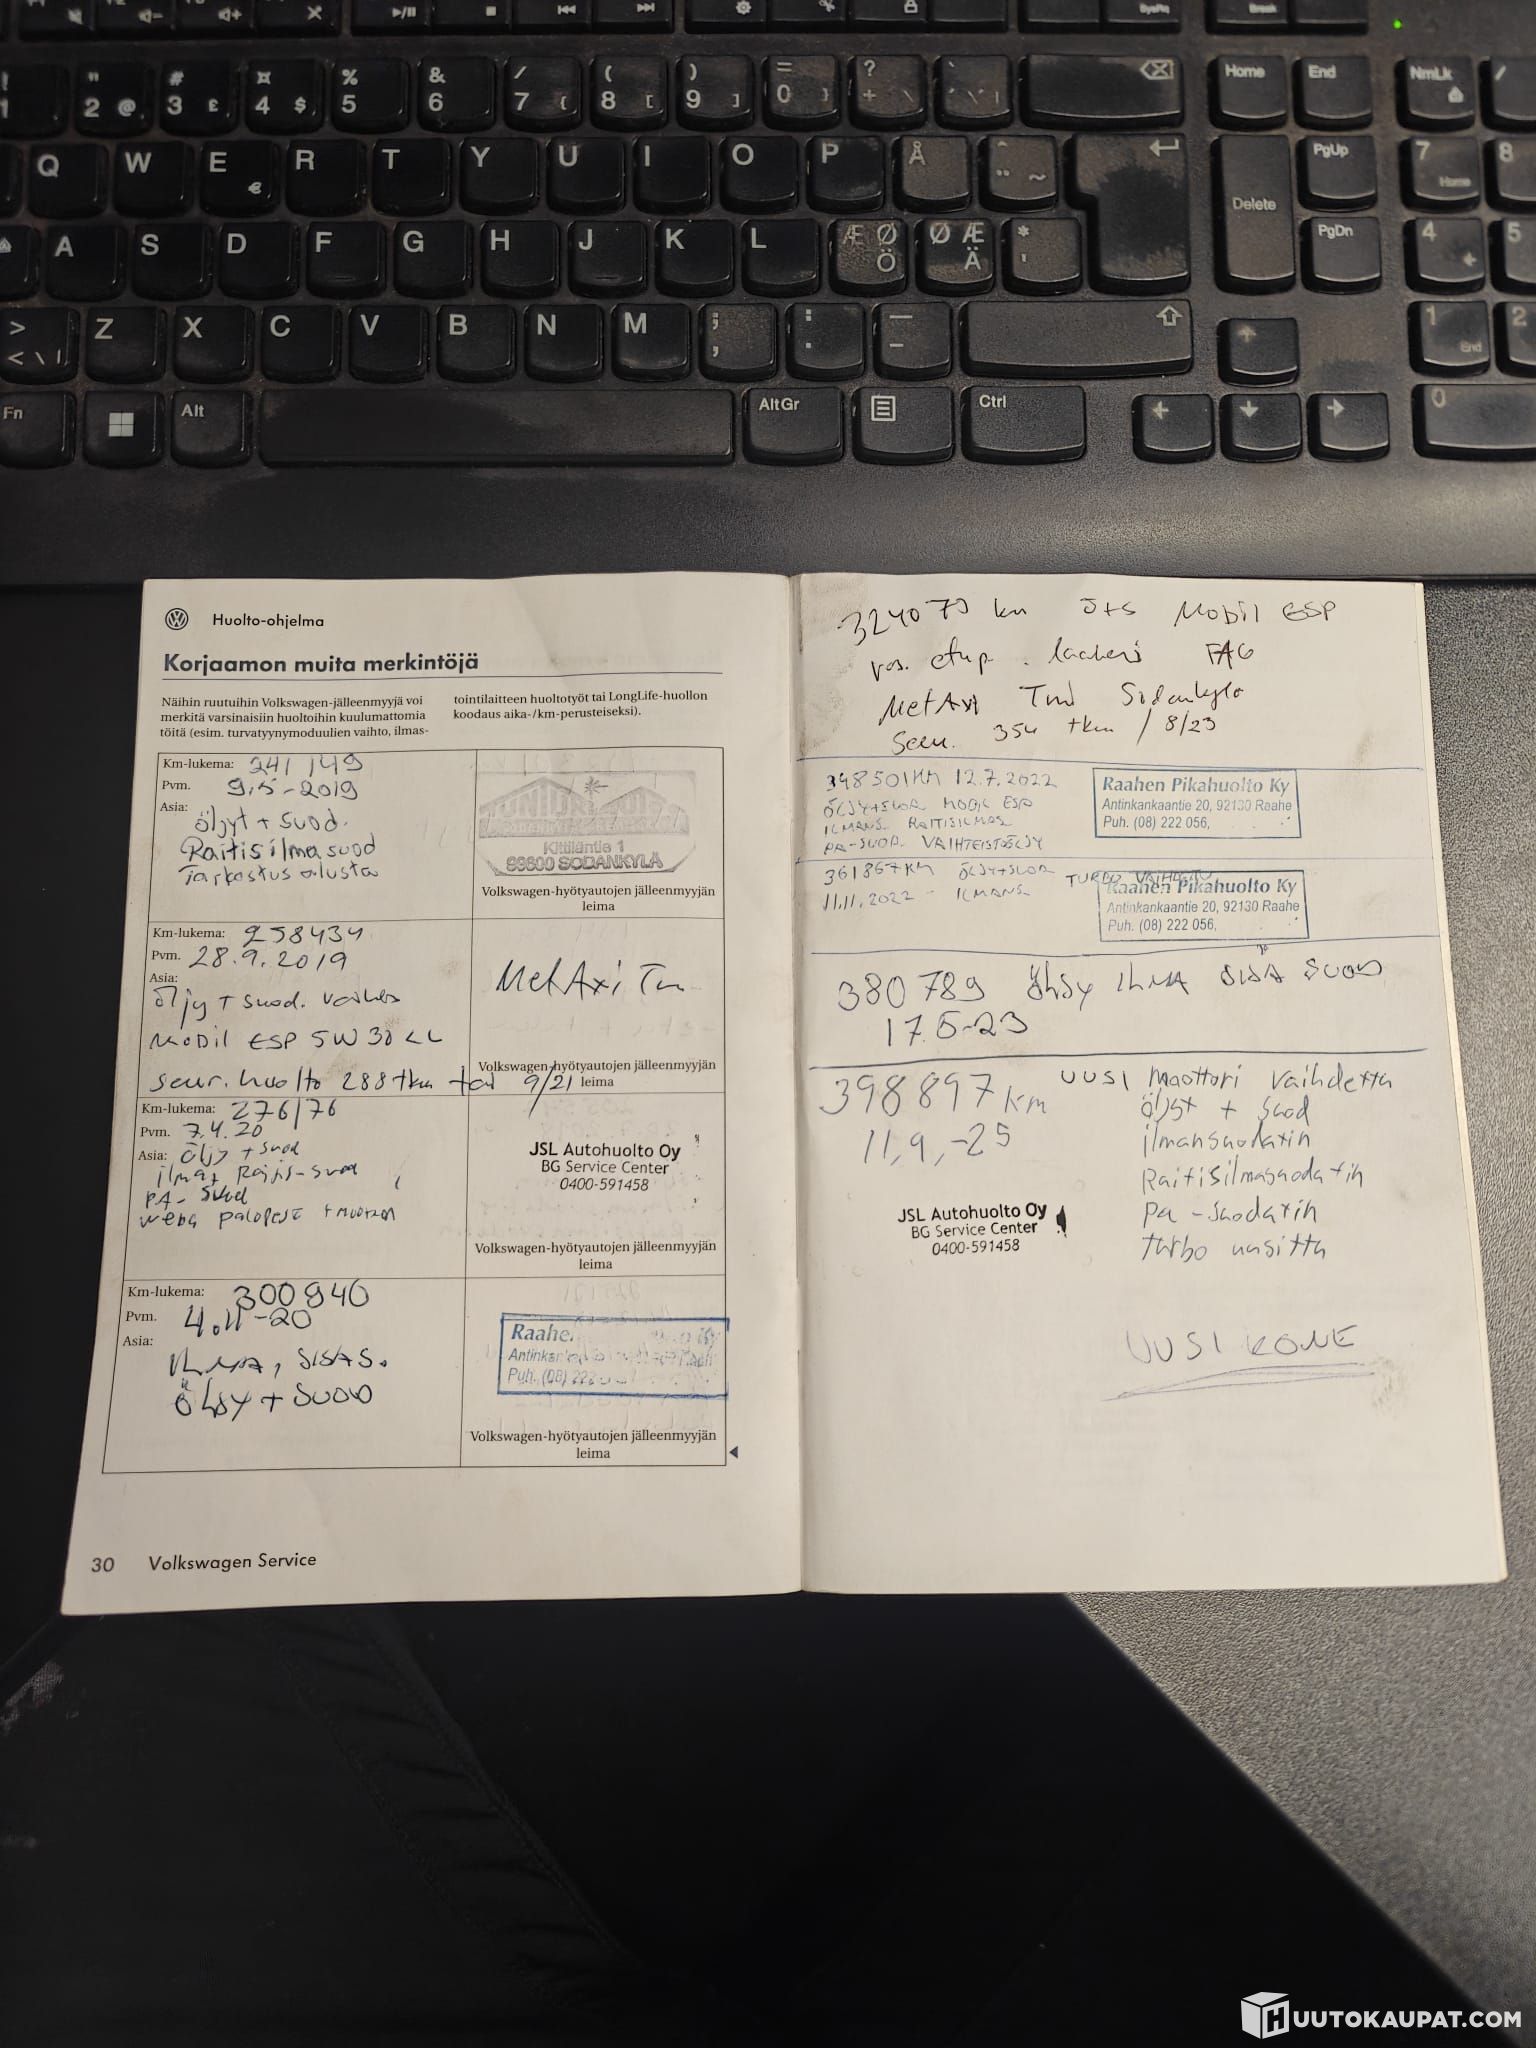 ! 1
" 2 @
# 3 £
¤ 4 $
% 5
& 6
/ 7 {
( 8 [
) 9 ]
= 0 }
? + \
Home
End
NmLk
Q W E € R T Y U I O P Å ^ ¨ ~
Delete
PgUp
7 Home
8
A S D F G H J K L Æ Ø Ö Ø Æ Ä * '
PgDn
4
5
> < \ | Z X C V B N M ; , : . _ -
1 End
2
Fn
Alt
AltGr
Ctrl
0
Huolto-ohjelma
Korjaamon muita merkintöjä
Näihin ruutuihin Volkswagen-jälleenmyyjä voi
merkitä varsinaisiin huoltoihin kuulumattomia
töitä (esim. turvatyynymoduulien vaihto, ilmas-
tointilaitteen huoltotyöt tai LongLife-huollon
koodaus aika-/km-perusteiseksi).
Km-lukema: 241 149
Pvm. 9.5-2019
Asia:
öljyt + suod.
Raitisilmasuod
Tarkastus alusta
Kittiläntie 1
99600 SODANKYLÄ
Volkswagen-hyötyautojen jälleenmyyjän
leima
Km-lukema: 258434
Pvm. 28.9.2019
Asia:
Öljy + suod. vaihto
Mobil ESP 5W30 LL
seur. huolto 288 tkm tai 9/21
MetAxi Tmi
Volkswagen-hyötyautojen jälleenmyyjän
leima
Km-lukema: 276176
Pvm. 7.4.20
Asia: Öljy + suod
ilma, Raitis-suod
PA-suod
JSL Autohuolto Oy
BG Service Center
0400-591458
Volkswagen-hyötyautojen jälleenmyyjän
leima
Km-lukema: 300940
Pvm. 4.11-20
Asia:
ILMA, SISÄS.
ÖLJY + SUOD
Raahe
Antinkan
Puh. (08) 222
Volkswagen-hyötyautojen jälleenmyyjän
leima
30 Volkswagen Service
324079 km Ö+S Mobil ESP
vas. etup. laakeri FAG
MetAxi Tmi Sodankylä
Seur. 354 tkm / 8/23
348501KM 12.7.2022
ÖLJY+SUOD MOBIL ESP
ILMANS. RAITISILMAS
PA-SUOD. VAIHTEISTOÖLJY
Raahen Pikahuolto Ky
Antinkankaantie 20, 92130 Raahe
Puh. (08) 222 056,
361867KM ÖLJY+SUOD TURBO VAIHDETTU
11.11.2022 - ILMANS.
Raahen Pikahuolto Ky
Antinkankaantie 20, 92130 Raahe
Puh. (08) 222 056,
380789 ÖLJY ILMA SISÄ SUOD
17.5-23
398897 km UUSI moottori vaihdettu
11,9,-25 öljyt + suod
ilmansuodatin
Raitisilmasuodatin
Pa-suodatin
turbo uusittu
JSL Autohuolto Oy
BG Service Center
0400-591458
UUSI KONE
HUUTOKAUPAT.COM